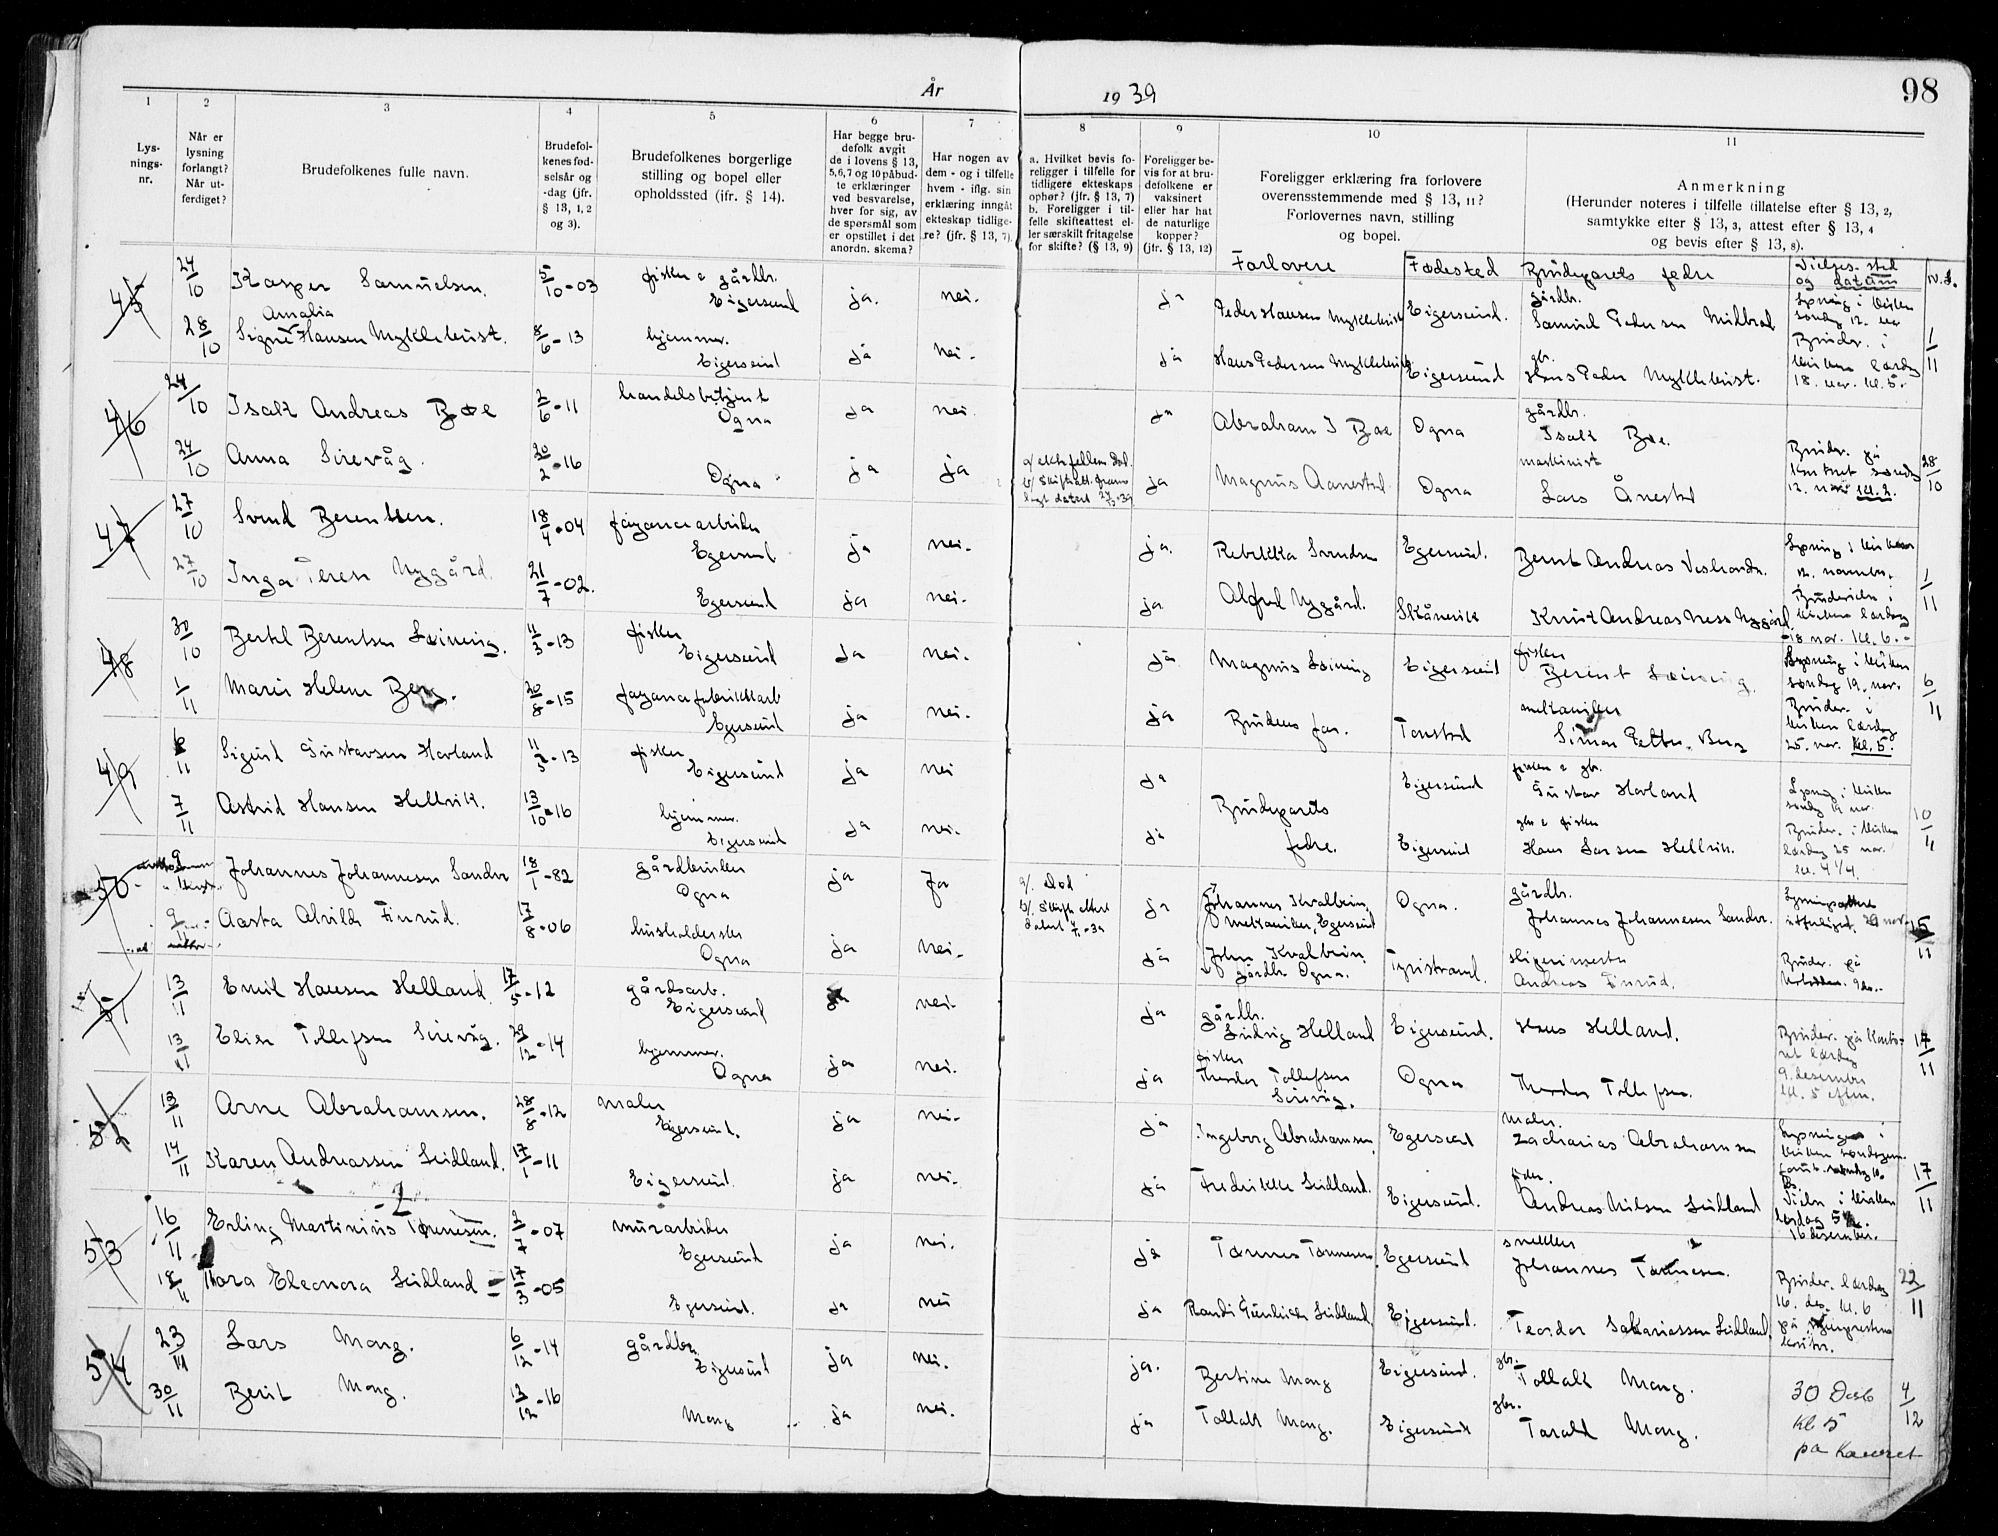 År 1939
98
1 2 3 4 5 6 7 8 9 10 11
Lys-
nings-
nr.
Når er
lysning
forlangt?
Når ut-
ferdiget?
Brudefolkenes fulle navn.
Brudefol-
kenes fød-
selsår og
-dag (jfr.
§ 13, 1, 2
og 3).
Brudefolkenes borgerlige
stilling og bopel eller
opholdssted (ifr. § 14).
Har begge bru-
defolk avgit
de i lovens § 13,
5,6,7 og 10 påbud-
te erklæringer
ved besvarelse,
hver for sig, av
de spørsmål som
er opstillet i det
anordn. skema?
Har nogen av
dem - og i tilfelle
hvem - iflg. sin
erklæring inngåt
ekteskap tidlige-
re? (jfr. § 13, 7).
a. Hvilket bevis fo-
religger i tilfelle for
tidligere ekteskaps
ophør? (jfr. § 13, 7)
b. Foreligger i til-
felle skifteattest el-
ler særskilt fritagelse
for skifte? (§ 13, 9)
Foreligger be-
vis for at bru-
defolkene er
vaksinert
eller har hat
de naturlige
kopper?
(jfr. § 13, 12)
Foreligger erklæring fra forlovere
overensstemmende med § 13, 11?
Forlovernes navn, stilling
og bopel.
Anmerkning
(Herunder noteres i tilfelle tillatelse efter § 13, 2,
samtykke efter § 13, 3, attest efter § 13, 4
og bevis efter § 13, 8).
Forlovere Fødested Brudeparets fedre Vielses-sted
og datum
45 24/10 Kasper Samuelsen. 5/10-03 fisker & gårdbr. Eigersund ja. nei. ja Peder Hansen Myklebust Eigersund. gårdbr. Samuel Pedersen Midbrød Lysning i kirken
søndag 12. nov
28/10 Signe Amalia Hansen Myklebust. 8/6-13 hjemmev. Eigersund ja nei. ja Hans Pedersen Myklebust Eigersund gbr. Hans Peder Myklebust. Brudev. i
kirken lørdag
18. nov. kl. 5. 1/11
46 24/10 Isak Andreas Bøe 2/6-11 handelsbetjent Ogna ja nei. ja Abraham I Bøe Ogna gårdbr. Isak Bøe.
24/10 Anna Sirevåg. 20/2-16 Ogna ja ja ja Magnus Aanestad Ogna maskinist Lars Ånestad Brudev. på
12. nov kl. 2. 28/10
47 27/10 Svend Berentsen. 18/4-04 fayancearbeider Egersund ja nei. ja. Rebekka Svendsen Egersund. Bernt Andreas Lysning i kirken
12. november.
27/10 Inga Terese Nygård. 21/7-02. Egersund ja nei. ja Alfred Nygård. Skånevik Knut Andreas Ness Nygård kirken lørdag
18 nov. kl. 6. 1/11
48 30/10 Bertel Berentsen Leining. 11/3-13 fisker Eigersund ja nei. ja Magnus Leining Eigersund fisker Berent Leining. Lysning i kirken
søndag 19. nov.
1/11 Marie Helene Berg. 20/8-15 fayancefabrikkarb Egersund ja nei. ja Brudens far. Tonstad mekaniker Simon Petter Berg Brudev. i
kirken lørdag
25. nov. kl. 5. 6/11
49 6/11 Sigurd Gustavsen Hovland 11/3-13 fisker Eigersund ja nei ja Brudeparets Eigersund fisker & gbr. Gustav Hovland Lysning i kirken
søndag 19 nov.
7/11 Astrid Hansen Hellvik. 13/10-16 hjemmev. Eigersund ja nei. ja fedre. Eigersund gbr & fisker Hans Larsen Hellvik. Brudev. i kirken
lørdag 25 nov.
kl. 4 1/4. 10/11
50 9/11 Johannes Johannesen Sandve 18/1-82 gårdbruker Ogna ja Ja a/. død ja Johannes Kvalbein, mekaniker, Egersund Ogna. gårdbr. Johannes Johannesen Sandve.
9/11 Aasta Alvilde Finrud. 17/8-06 husholderske Ogna ja nei. ja John Kvalbein, gårdbr. Ogna. Tyristrand. Andreas Finrud. Brudev. på 15/11
51 13/11 Emil Hansen Helland. 17/5-12 gårdsarb. Eigersund ja nei. ja gårdbr. Ludvig Helland Eigersund. Hans Helland.
13/11 Elise Tollefsen Sirevåg. 29/12-14 hjemmev. Ogna ja nei. ja fisker Theodor Tollefsen Sirevåg. Ogna Theodor Tollefsen. Brudev. på Konto-
ret lørdag
9. desember
kl. 5 eftm. 14/11
52 13/11 Arne Abrahamsen. 28/8-12 maler Egersund. ja nei. ja Ingeborg Abrahamsen Egersund maler. Zacharias Abrahamsen Lysninger i
14/11 Karen Andreassen Seidland. 17/1-11 Eigersund. ja nei. ja Fredrikke Seidland. Eigersund. Andreas Nilsen Seidland Vielse i kirken
lørdag 5
16 desember. 17/11
53 16/11 Erling Martinius Tønnesen. 2/7-07 murarbeider Egersund ja nei. ja Tønnes Tønnesen. Egersund snekker Johannes Tønnesen.
18/11 Nora Eleonora Seidland 17/3-05 Egersund. ja nei ja Seidland. Eigersund. Teodor Sakariassen Seidland. Brudev. lørdag
16. des. kl. 6
på sogneprestens
kontor. 22/11
54 23/11 Lars Mong. 6/12-14 gårdbr. Eigersund ja nei. ja. Bertine Mong Eigersund. gbr. Tollak Mong.
30/11 Berit Mong. 13/12-16 Mong ja nei. ja Tollak Mong. Eigersund gbr. Tarald Mong. 30 Des
kl 5
på Kontoret 4/12